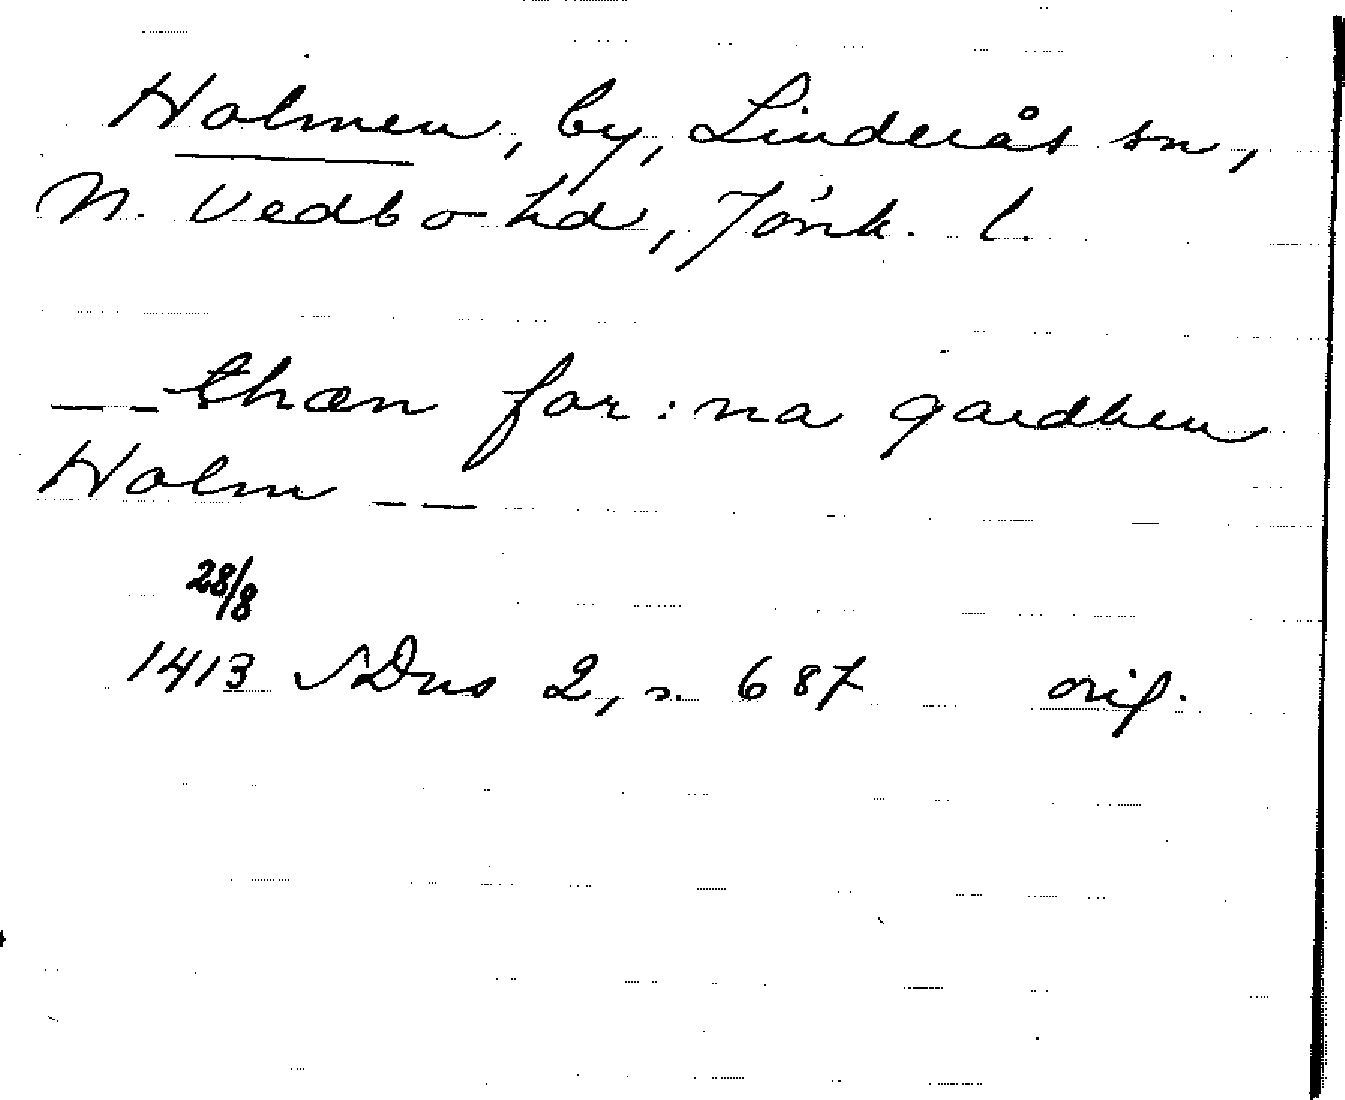 Holmen, by, Linderås sn,
N. Vedbo hd, Jönk. l.
— — thæn for:na gardhen
Holm — —
28/8
1413 SDns 2, s. 687 orig.